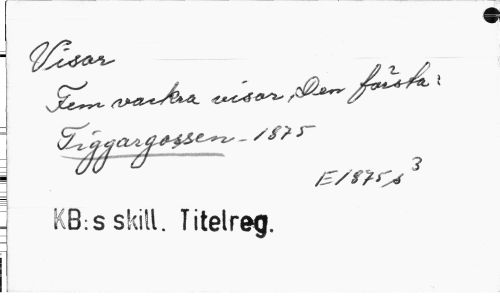 Visor
Fem vackra visor, Den första:
Tiggargossen - 1875
E1875 s 3
KB:s skill. Titelreg.